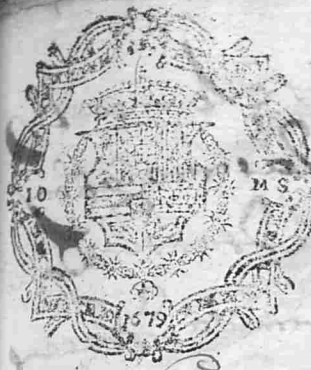 10 MS
1679